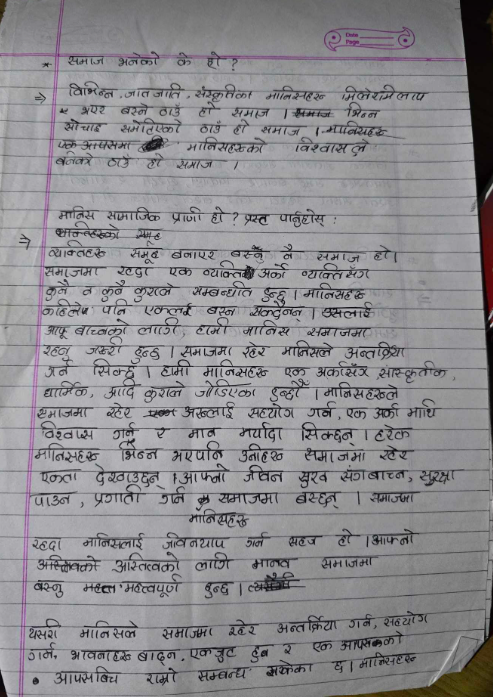 Date
Page
* समाज भनेको के हो ?
⇒ विभिन्न जातजाति, संस्कृतिका मानिसहरू मिलेरमिलाप
भएर बस्ने ठाउँ हो समाज । भिन्न
सोचाइ समेटिएको ठाउँ हो समाज । मानिसहरू
एक आपसमा मानिसहरूको विश्वासले
बनेको ठाउँ हो समाज ।
मानिस सामाजिक प्राणी हो ? प्रस्ट पार्नुहोस् :
⇒ व्यक्तिहरूको समूह
व्यक्तिहरू समूह बनाएर बस्नु नै समाज हो ।
समाजमा रहदा एक व्यक्ति अर्को व्यक्तिसँग
कुनै न कुनै कुराले सम्बन्धीत हुन्छ । मानिसहरू
कहिले पनि एक्लै बस्न सक्दैनन् । उसलाई
आफू बाच्नको लागि, हामी मानिस समाजमा
रहनु जरुरी हुन्छ । समाजमा रहेर मानिसले अन्तर्क्रिया
गर्न सिक्छ । हामी मानिसहरू एक अर्कासँग सांस्कृतीक,
धार्मिक, आदि कुराले जोडिएका हुन्छौँ । मानिसहरूले
समाजमा रहेर अरुलाई सहयोग गर्न, एक अर्का माथि
विश्वास गर्न र मान मर्यादा सिक्छन् । हरेक
मानिसहरू भिन्न भएपनि उनीहरू समाजमा रहेर
एकता देखाउछन् । आफ्नो जीवन सुख संग बाच्न, सुरक्षा
पाउन, प्रगाती गर्न समाजमा बस्छन् । समाजमा
मानिसहरू
रहदा मानिसलाई जीवनयाप गर्न सहज हो । आफ्नो
अस्तित्वको लागि मानव समाजमा
बस्नु महत्वपूर्ण हुन्छ ।
यसरी मानिसले समाजमा रहेर अन्तर्क्रिया गर्न, सहयोग
गर्न, भावनाहरू बाढ्न, एकजुट हुन र एक आपसको
आपसबिच राम्रो सम्बन्ध सकेका छ । मानिसहरू